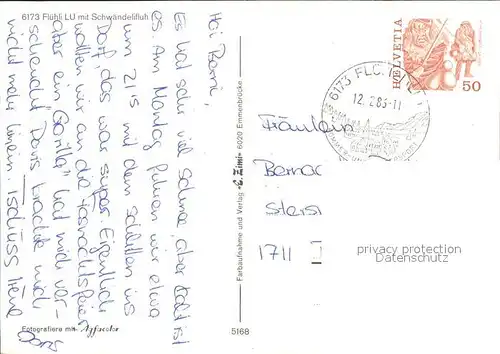 6173 Flühli LU mit Schwändelifluh
Hoi Berni,
Es hat sehr viel Schnee aber kalt ist
es. Am Montag fuhren wir etwa
um 21's mit dem schlitten ins
Dorf, das war super. Eigentlich
wollten wir an die fasnachtsfeier
aber ein "Gorilla" hat mich ver-
scheucht. Doris brachte mich
nicht mehr hinein. Tschüss Irene
Fotografiere mit Agfacolor
Farbaufnahme und Verlag «E. Zimi» 6020 Emmenbrücke
5168
HELVETIA
50
6173 FLÜHLI
12.2.83-11
Fräulein
Bernac
1711
privacy protection
Datenschutz